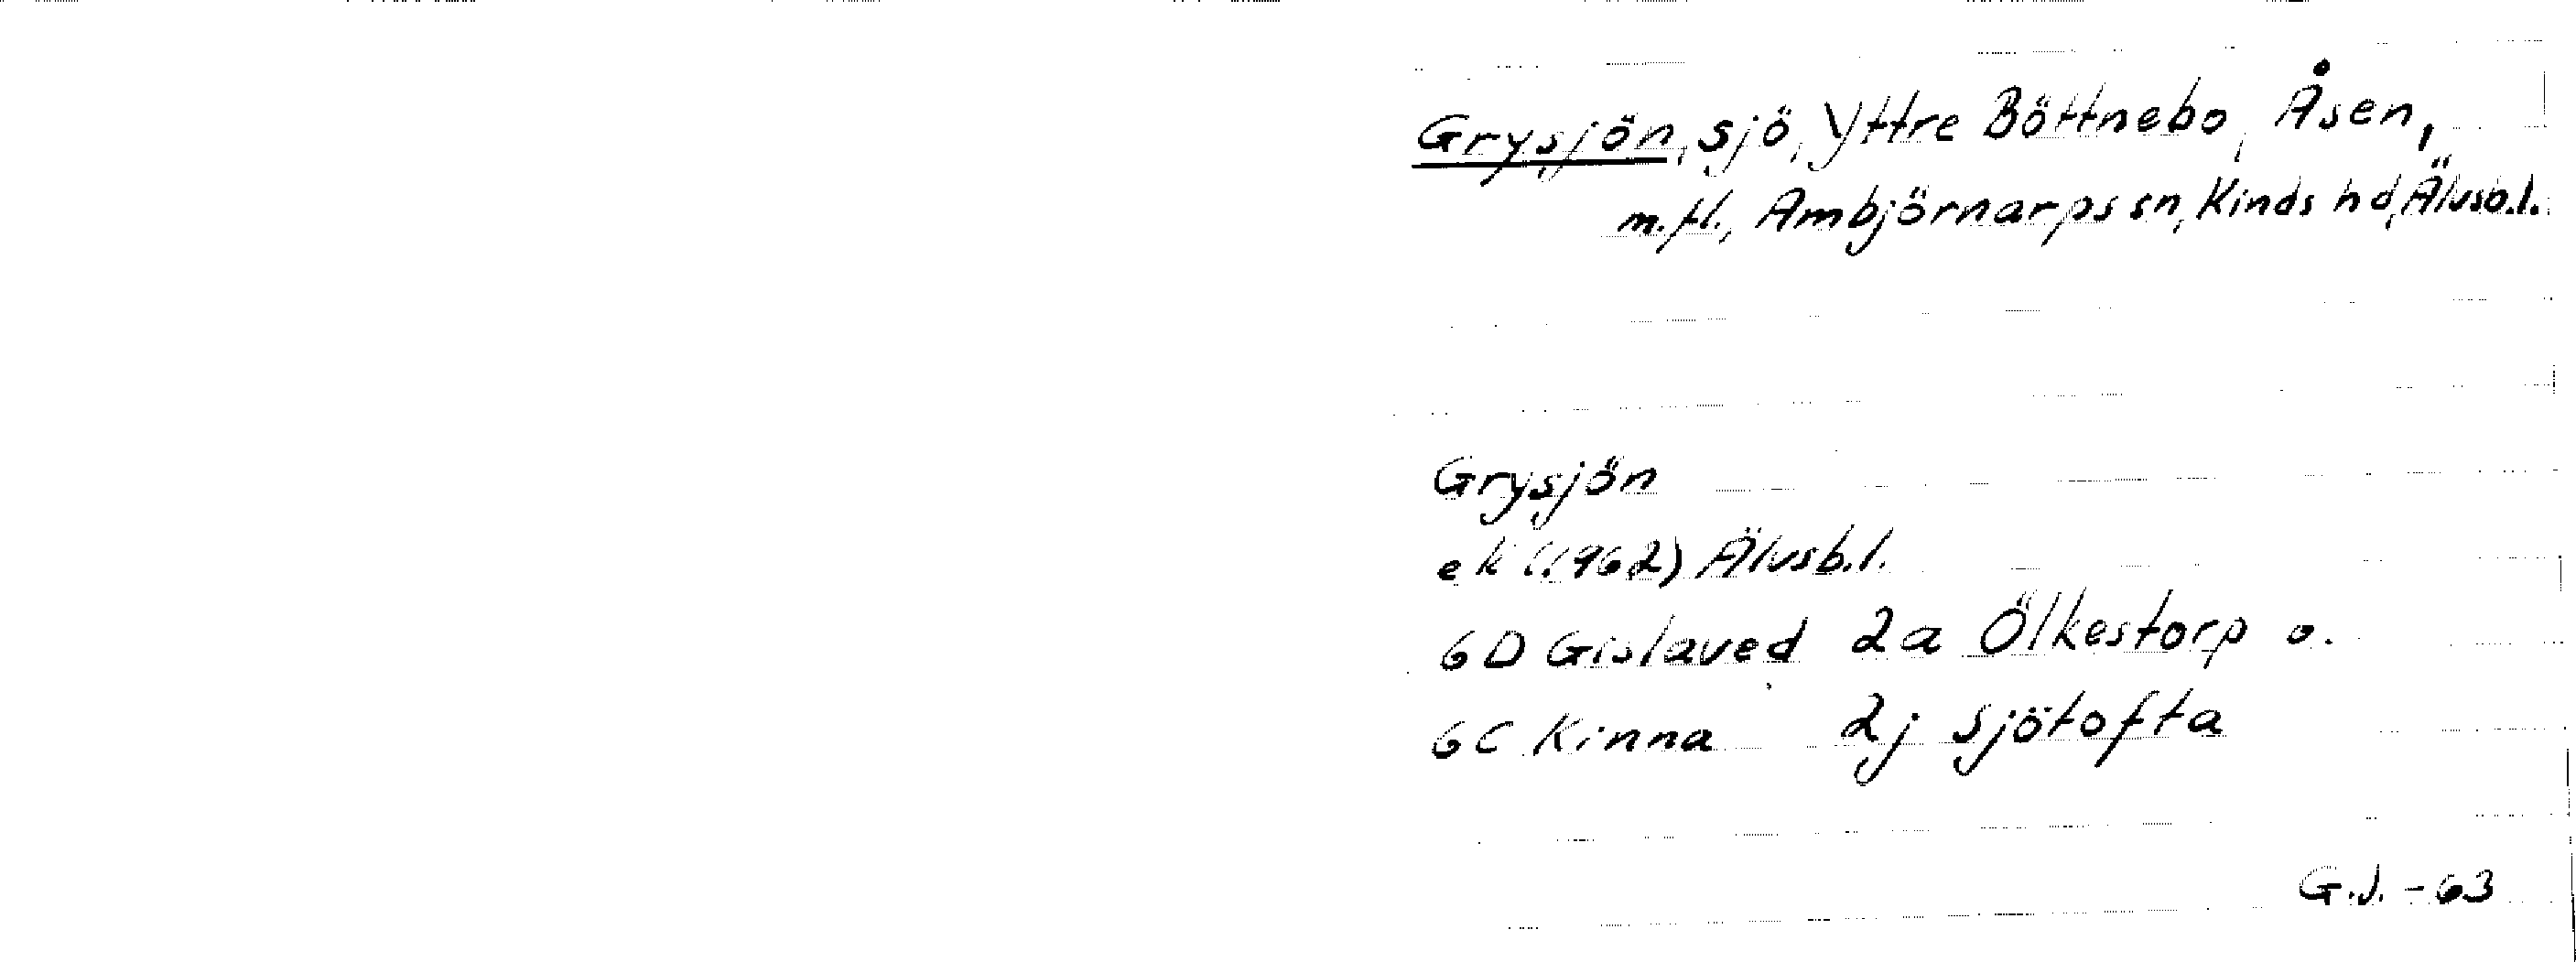 Grysjön, sjö, Yttre Böttnebo, Åsen,
m.fl., Ambjörnarps sn, Kinds hd, Älvsb.l.
Grysjön
ek (1962) Älvsb.l.
6D Gislaved 2a Ölkestorp o.
6C Kinna 2j Sjötofta
G.J. -63